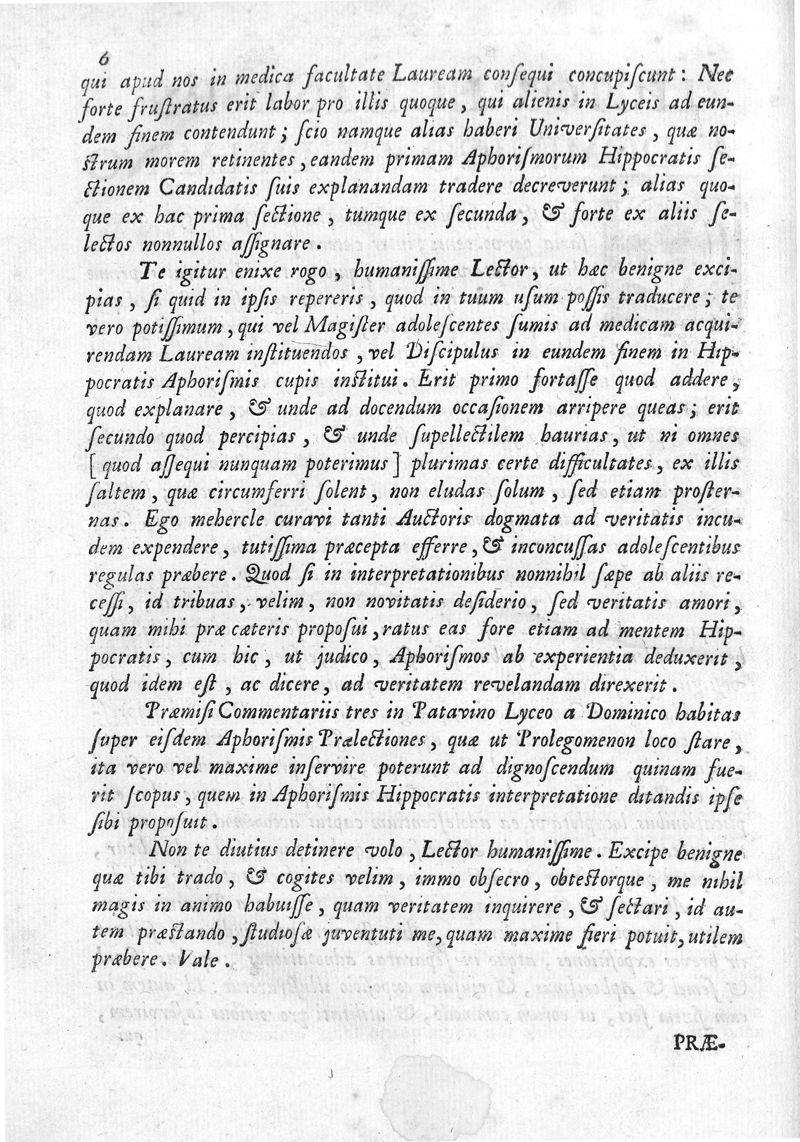 6
qui apud nos in medica facultate Lauream conſequi concupiſcunt: Nec
forte fruſtratus erit labor pro illis quoque, qui alienis in Lyceis ad eun-
dem finem contendunt; ſcio namque alias haberi Univerſitates, quæ no-
ſtrum morem retinentes, eandem primam Aphoriſmorum Hippocratis ſe-
ctionem Candidatis ſuis explanandam tradere decreverunt; alias quo-
que ex hac prima ſectione, tumque ex ſecunda, & forte ex aliis ſe-
lectos nonnullos aſſignare.
Te igitur enixe rogo, humaniſſime Lector, ut hæc benigne exci-
pias, ſi quid in ipſis repereris, quod in tuum uſum poſſis traducere; te
vero potiſſimum, qui vel Magiſter adoleſcentes ſumis ad medicam acqui-
rendam Lauream inſtituendos, vel Diſcipulus in eundem finem in Hip-
pocratis Aphoriſmis cupis inſtitui. Erit primo fortaſſe quod addere,
quod explanare, & unde ad docendum occaſionem arripere queas; erit
ſecundo quod percipias, & unde ſupellectilem haurias, ut ni omnes
[quod aſſequi nunquam poterimus] plurimas certe difficultates, ex illis
ſaltem, quæ circumferri ſolent, non eludas ſolum, ſed etiam proſter-
nas. Ego mehercle curavi tanti Auctoris dogmata ad veritatis incu-
dem expendere, tutiſſima præcepta efferre, & inconcuſſas adoleſcentibus
regulas præbere. Quod ſi in interpretationibus nonnihil ſæpe ab aliis re-
ceſſi, id tribuas, velim, non novitatis deſiderio, ſed veritatis amori,
quam mihi præ cæteris propoſui, ratus eas fore etiam ad mentem Hip-
pocratis, cum hic, ut judico, Aphoriſmos ab experientia deduxerit,
quod idem eſt, ac dicere, ad veritatem revelandam direxerit.
Præmiſi Commentariis tres in Patavino Lyceo a Dominico habitas
ſuper eiſdem Aphoriſmis Prælectiones, quæ ut Prolegomenon loco ſtare,
ita vero vel maxime inſervire poterunt ad dignoſcendum quinam fue-
rit ſcopus, quem in Aphoriſmis Hippocratis interpretatione ditandis ipſe
ſibi propoſuit.
Non te diutius detinere volo, Lector humaniſſime. Excipe benigne
quæ tibi trado, & cogites velim, immo obſecro, obteſtorque, me nihil
magis in animo habuiſſe, quam veritatem inquirere, & ſectari, id au-
tem præſtando, ſtudioſæ juventuti me, quam maxime fieri potuit, utilem
præbere. Vale.
PRÆ-